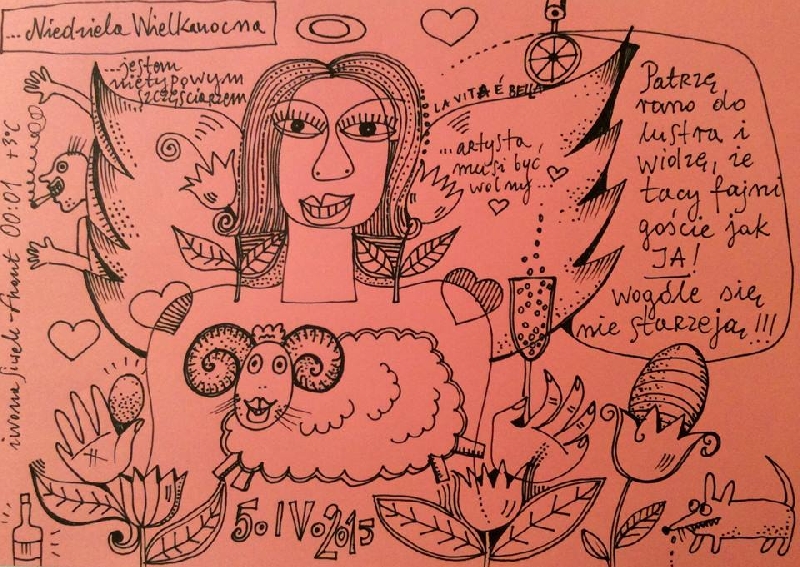 ...Niedziela Wielkanocna
...jestem
nietypowym
szczęściarzem
LA VITA É BELLA
...artysta,
musi być
wolny...
Patrzę
rano do
lustra i
widzę, że
tacy fajni
goście jak
JA!
wogóle się
nie starzeją!!!
00:01 +3°C
5.IV.2015